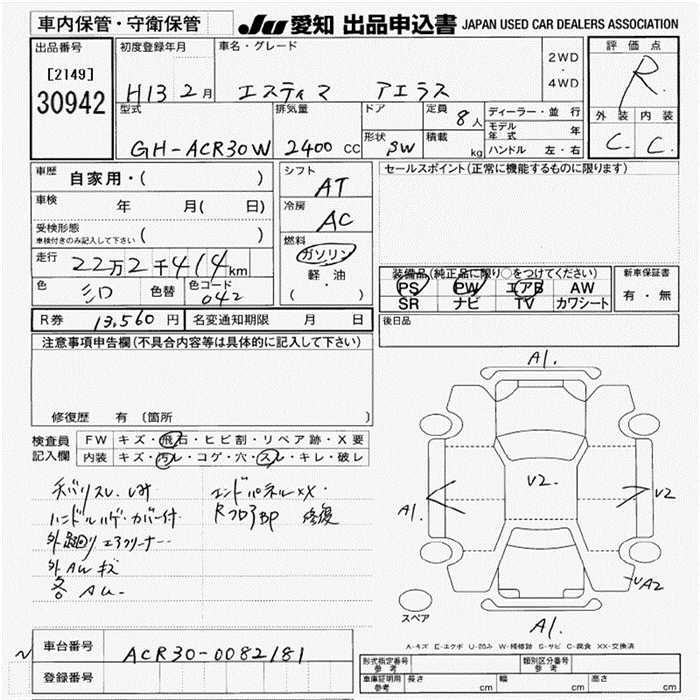 車内保管・守衛保管
JU 愛知 出品申込書 JAPAN USED CAR DEALERS ASSOCIATION
出品番号
[2149]
30942
初度登録年月
H13 2月
車名・グレード
エスティマ アエラス
2WD
・
4WD
評価点
R.
外装 内装
C. C.
型式
GH-ACR30W
排気量
2400 CC
ドア
形状
SW
定員
8人
積載
kg
ディーラー・並行
モデル年式 年
ハンドル 左・右
車歴 自家用・( )
車検 年 月( 日)
受検形態
車検付きのみ記入して下さい ( )
走行 22万2千414km
色 シロ 色替 色コード 042
シフト
AT
冷房
AC
燃料
ガソリン
軽油
( ・ )
セールスポイント(正常に機能するものに限ります)
装備品(純正品に限り○をつけてください)
PS PW エアB AW
SR ナビ TV カワシート
新車保証書
有・無
R券 13,560円 名変通知期限 月 日
後日品
注意事項申告欄(不具合内容等は具体的に記入して下さい)
修復歴 有 〔箇所
検査員記入欄
FW キズ・飛石・ヒビ割・リペア跡・X要
内装 キズ・汚レ・コゲ・穴・スレ・キレ・破レ
エンドパネルXX
ハンドルハゲ・カバー付
RフロアBP 修復
エアクリーナー
外AWキズ
A1.
A1.
V2.
V2
A2
A1.
スペア
A-キズ E-エクボ U-凹み W-補修跡 S-サビ C-腐食 XX-交換済
車台番号 ACR30-0082181
登録番号
形式指定番号 参考
類別区分番号 参考
車庫証明用 参考 長さ cm 幅 cm 高さ cm